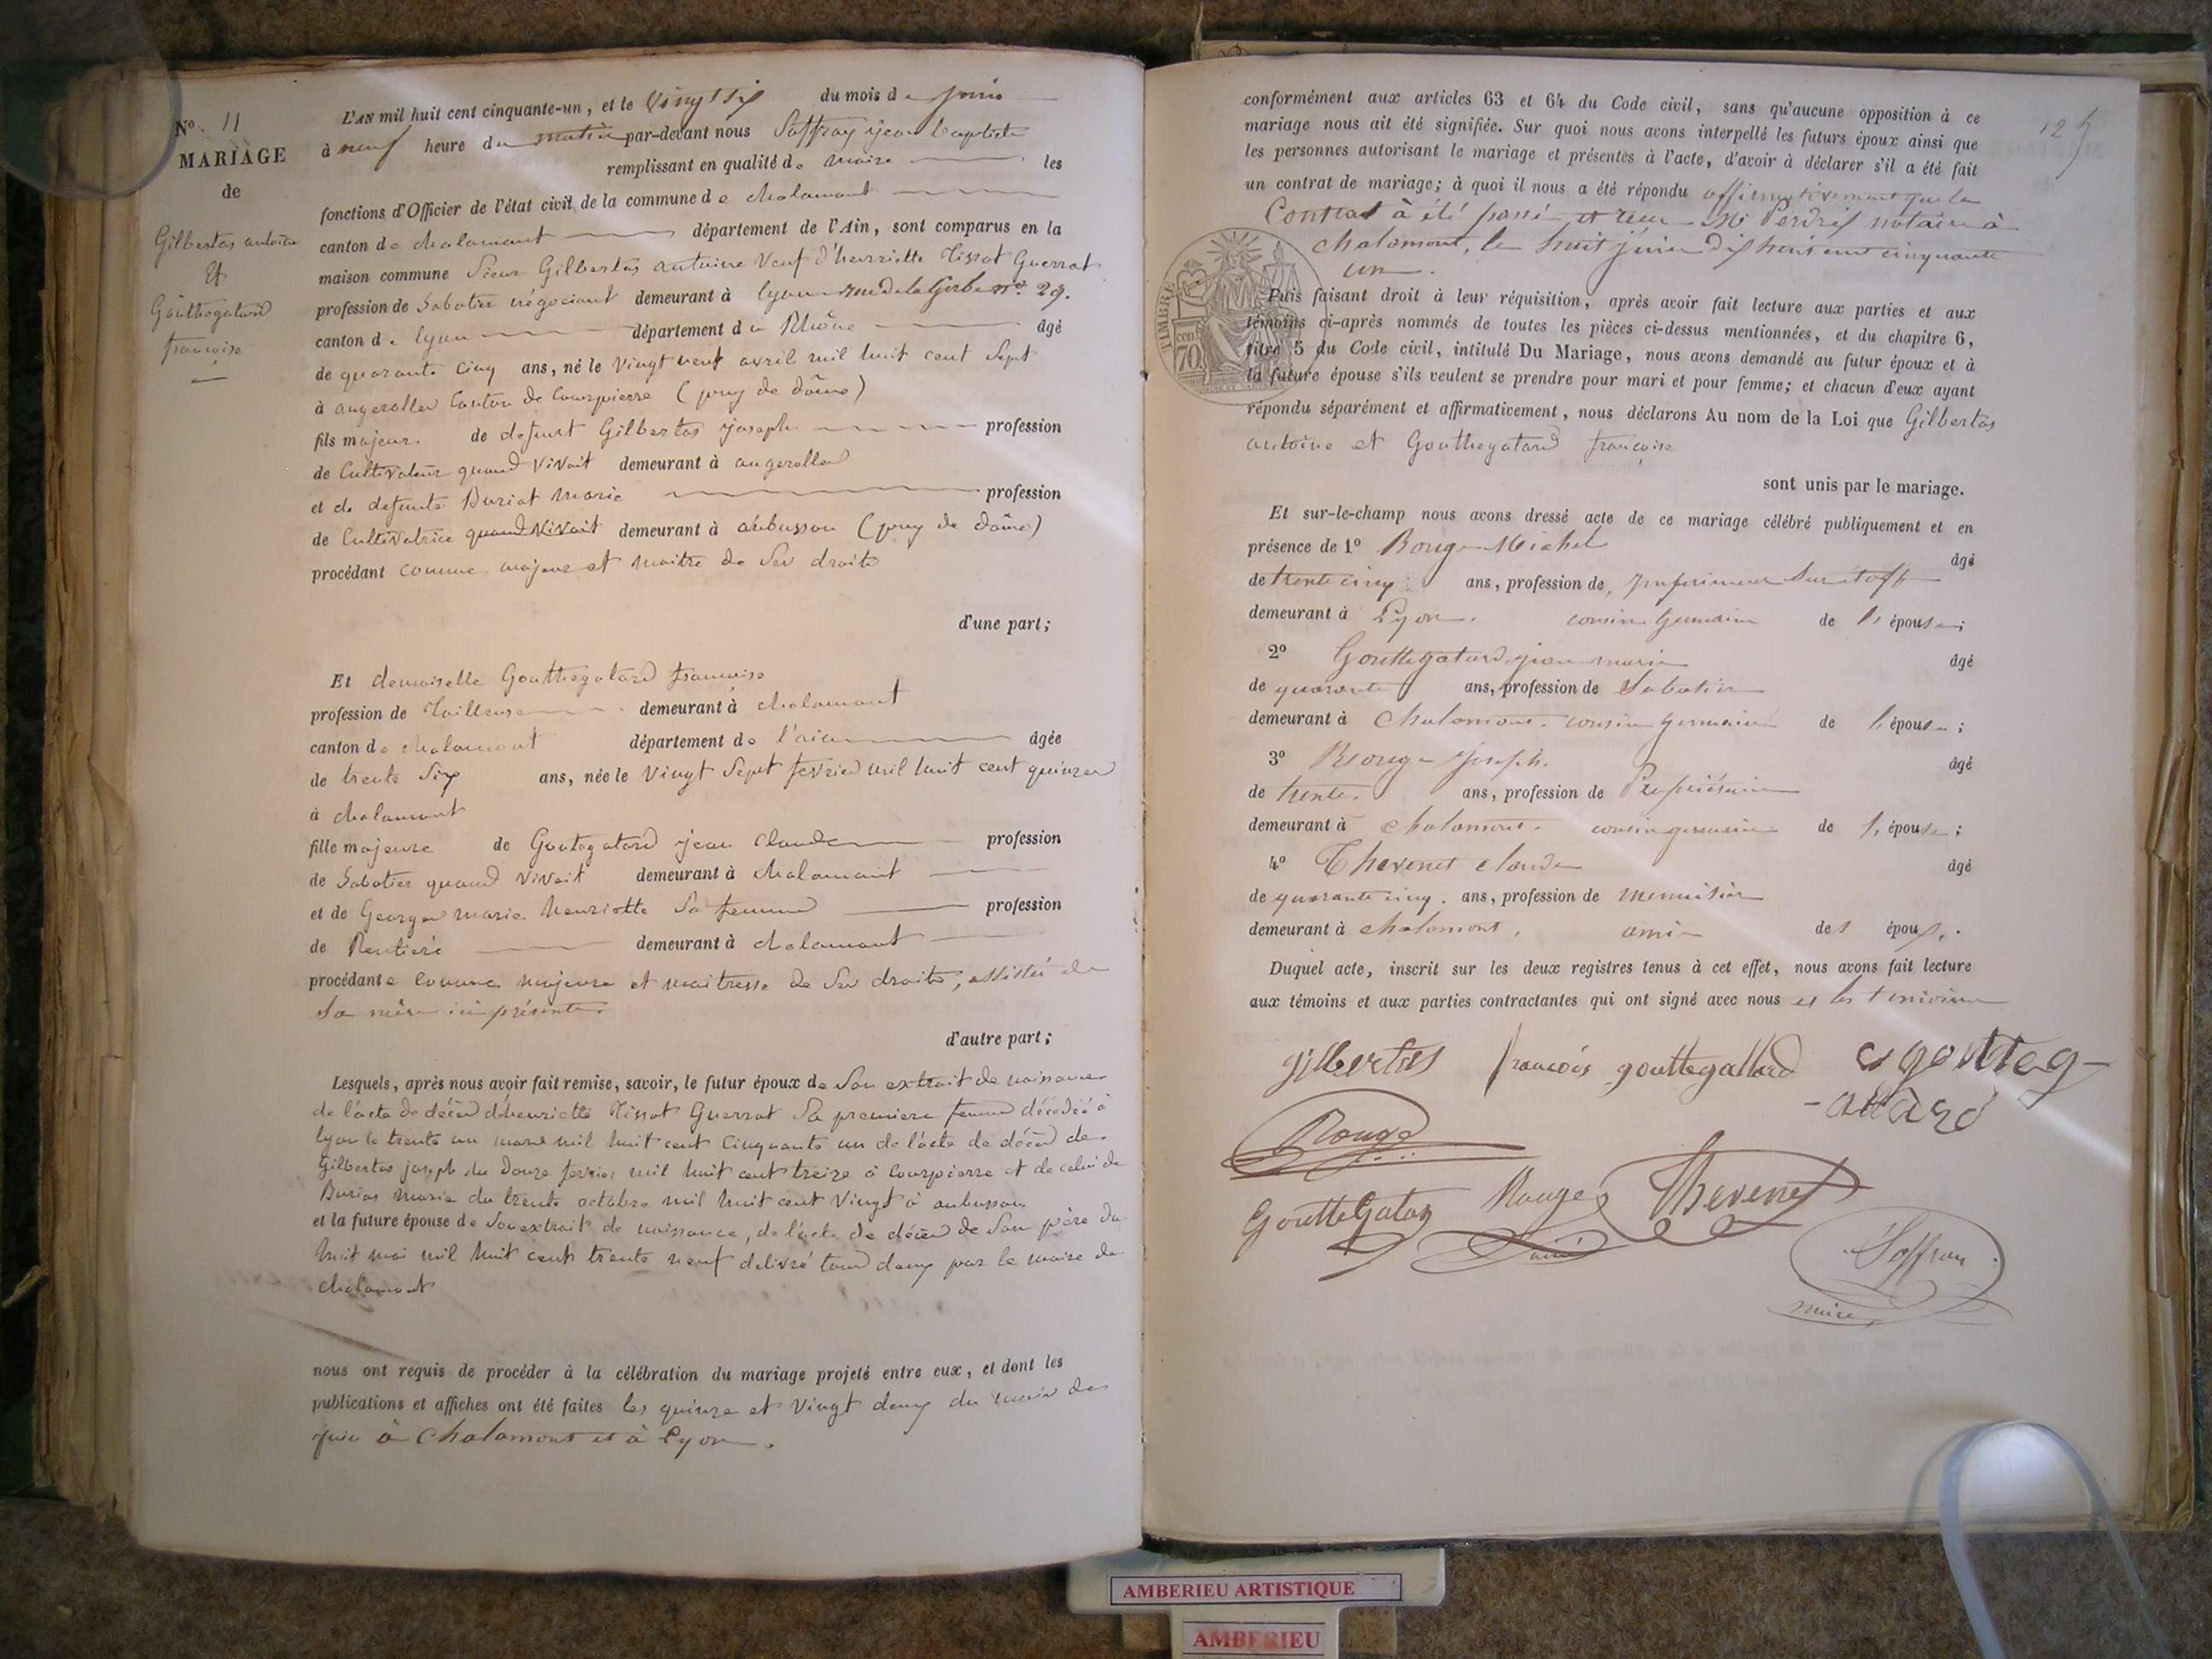 N° 11
MARIAGE
de
Gilbertas antoine
Et
Gouthegatard
francoise
L'AN mil huit cent cinquante-un, et le Vingt Six du mois de juin
à neuf heure du matin par-devant nous Saffray jean baptiste
remplissant en qualité de maire les
fonctions d'Officier de l'état civil de la commune de chalamont
canton de chalamont département de l'Ain, sont comparus en la
maison commune Sieur Gilbertas antoine Veuf d'henriette Tissot Guerrat
profession de Sabotier négociant demeurant à lyon rue de la Gerbe n° 29.
canton de lyon département du Rhône âgé
de quarante cinq ans, né le Vingt neuf avril mil huit cent Sept
à augerolles Canton de Courpierre (puy de dôme)
fils majeur de defunt Gilbertas joseph profession
de Cultivateur quand Vivait demeurant à augerolles
et de defunte Buriat Marie profession
de Cultivatrice quand Vivait demeurant à aubusson (puy de dôme)
procédant comme majeur et maitre de Ses droits
d'une part;
Et demoiselle Gouthegatard francoise
profession de Tailleuse demeurant à chalamont
canton de chalamont département de l'ain âgée
de trente Six ans, née le Vingt Sept fevrier mil huit cent quinze
à chalamont
fille majeure de Goutegatard jean Claude profession
de Sabotier quand Vivait demeurant à chalamont
et de Georges marie henriette Sa femme profession
de Rentiere demeurant à chalamont
procédante comme majeure et maitresse de Ses droits, assistée de
Sa mère ici présente
d'autre part;
Lesquels, après nous avoir fait remise, savoir, le futur époux de Son extrait de naissance
de l'acte de décès d'henriette Tissot Guerrat Sa premiere femme décédée à
lyon le trente un mars mil huit cent Cinquante un de l'acte de décès de
Gilbertas joseph du Douze fevrier mil huit cent treize à Courpierre et de celui de
Burias Marie du trente octobre mil huit cent Vingt à aubusson
et la future épouse de Son extrait de naissance, de l'acte de décès de Son père du
huit mai mil huit cent trente neuf delivré tous deux par le maire de
chalamont
nous ont requis de procéder à la célébration du mariage projeté entre eux, et dont les
publications et affiches ont été faites les quinze et Vingt deux du mois de
juin à Chalamont et à Lyon.
125
conformément aux articles 63 et 64 du Code civil, sans qu'aucune opposition à ce
mariage nous ait été signifiée. Sur quoi nous avons interpellé les futurs époux ainsi que
les personnes autorisant le mariage et présentes à l'acte, d'avoir à déclarer s'il a été fait
un contrat de mariage; à quoi il nous a été répondu affirmativement que le
Contrat à été passé et reçu Me Perdrix notaire à
Chalamont, le huit juin dix huit cent cinquante
un.
TIMBRE
70 cen
Puis faisant droit à leur réquisition, après avoir fait lecture aux parties et aux
témoins ci-après nommés de toutes les pièces ci-dessus mentionnées, et du chapitre 6,
titre 5 du Code civil, intitulé Du Mariage, nous avons demandé au futur époux et à
la future épouse s'ils veulent se prendre pour mari et pour femme; et chacun d'eux ayant
répondu séparément et affirmativement, nous déclarons Au nom de la Loi que Gilbertas
antoine et Gouthegatard francoise
sont unis par le mariage.
Et sur-le-champ nous avons dressé acte de ce mariage célébré publiquement et en
présence de 1° Rouge Michel âgé
de trente cinq ans, profession de Imprimeur Sur étoffe
demeurant à Lyon. cousin germain de l'épouse;
2° Gouttegatard jean marie âgé
de quarante ans, profession de Sabotier
demeurant à Chalamont. cousin germain de l'épouse;
3° Rouge joseph. âgé
de trente. ans, profession de Propriétaire
demeurant à Chalamont. cousin germain de l'épouse;
4° Thevenet claude âgé
de quarante cinq. ans, profession de menuisier
demeurant à chalamont. ami des époux.
Duquel acte, inscrit sur les deux registres tenus à cet effet, nous avons fait lecture
aux témoins et aux parties contractantes qui ont signé avec nous et les temoins
gilbertas francois gouttegattard gouteg-
-attard
Rouge
GoutteGatar Rouge Thevenet
Saffray
maire
AMBERIEU ARTISTIQUE
AMBERIEU